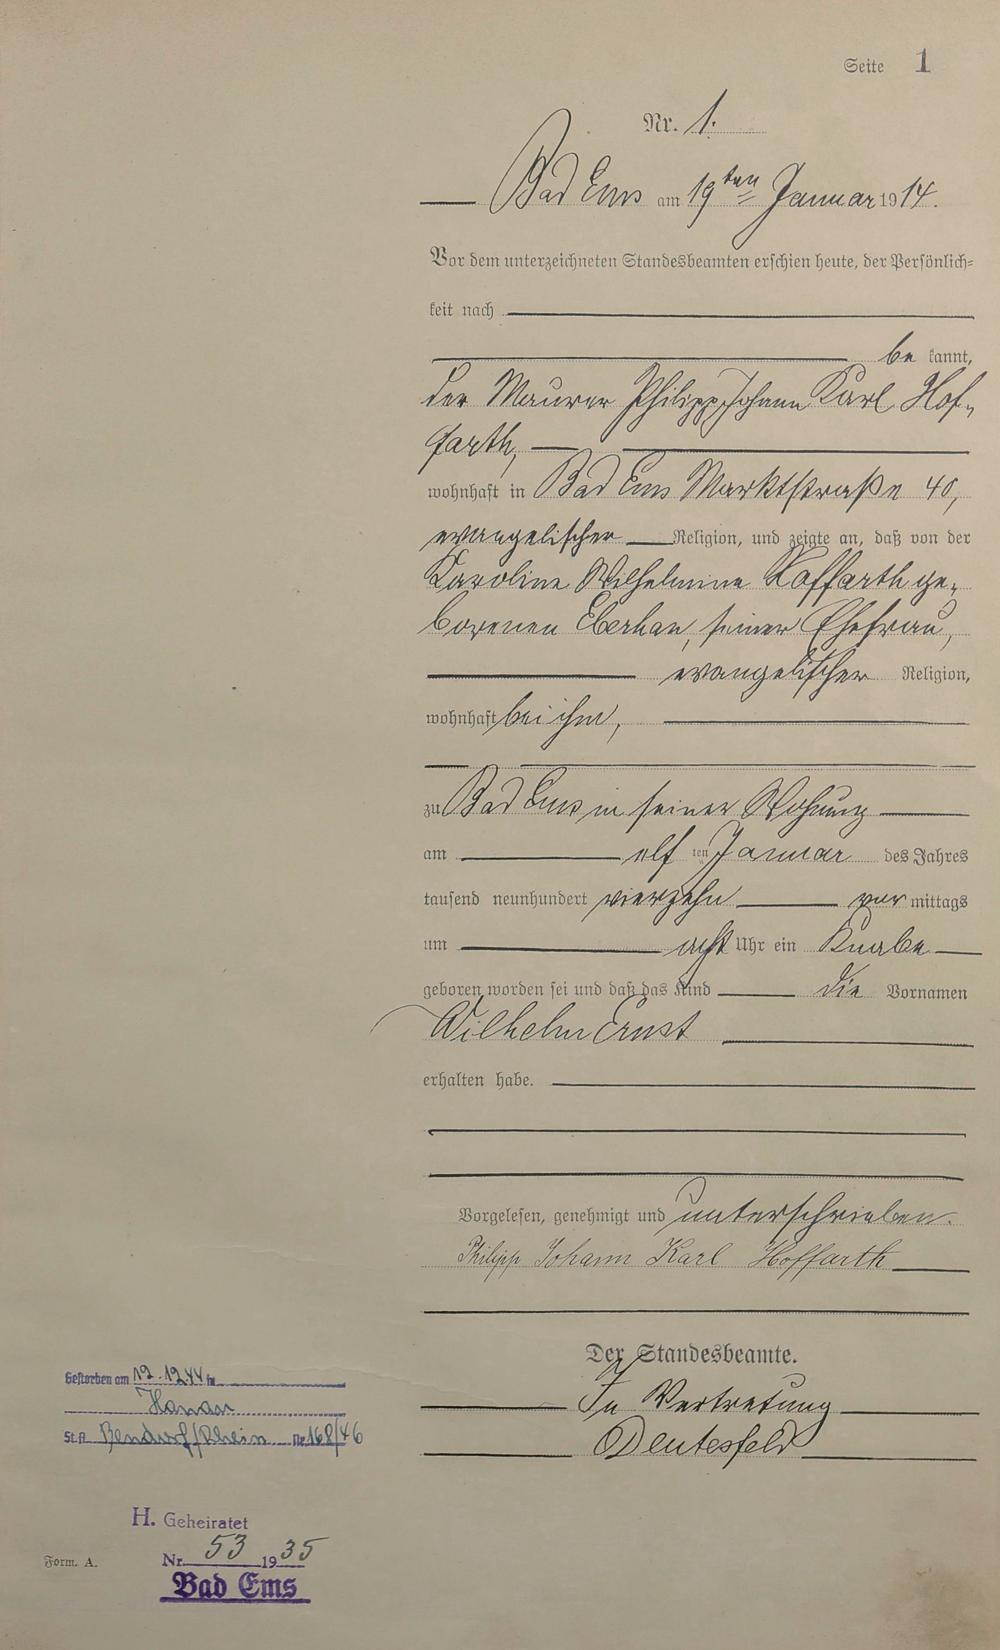 Seite 1
Nr. 1.
Bad Ems am 19ten Januar 1914.
Vor dem unterzeichneten Standesbeamten erschien heute, der Persönlich=
keit nach
be kannt,
der Maurer Philipp Johann Karl Hof-
farth,
wohnhaft in Bad Ems Marktstraße 40,
evangelischer Religion, und zeigte an, daß von der
Karoline Wilhelmine Hoffarth ge-
borenen, seiner Ehefrau,
evangelischer Religion,
wohnhaft bei ihm,
zu Bad Ems in seiner Wohnung
am elf ten Januar des Jahres
tausend neunhundert vierzehn vor mittags
um acht Uhr ein Knabe
geboren worden sei und daß das Kind die Vornamen
Wilhelm Ernst
erhalten habe.
Vorgelesen, genehmigt und unterschrieben.
Philipp Johann Karl Hoffarth
Der Standesbeamte.
In Vertretung
Gestorben am 12.1944 in
Hanau
St.A. Bendorf/Rhein Nr. 168/46
H. Geheiratet
Nr. 53 1935
Bad Ems
Form. A.